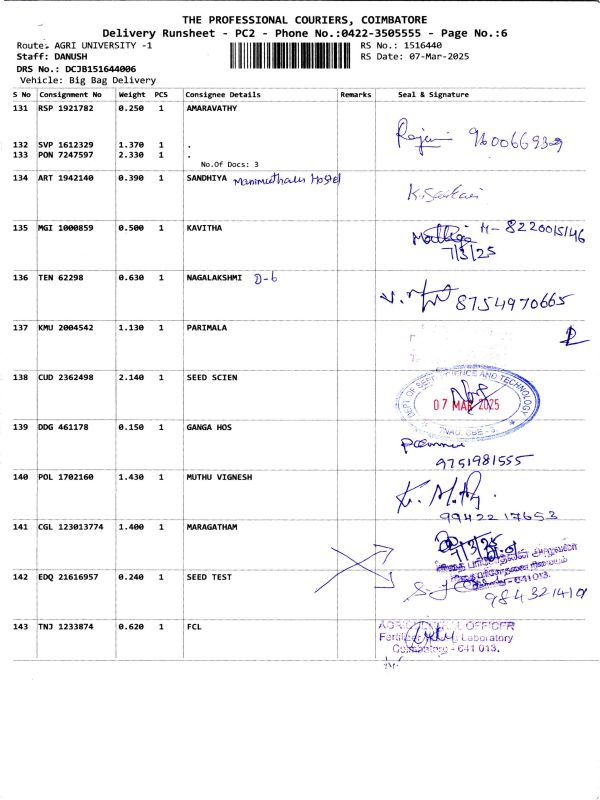 THE PROFESSIONAL COURIERS, COIMBATORE
Delivery Runsheet - PC2 - Phone No.:0422-3505555 - Page No.:6
Route: AGRI UNIVERSITY -1 RS No.: 1516440
Staff: DANUSH RS Date: 07-Mar-2025
DRS No.: DCJB151644006
Vehicle: Big Bag Delivery
S No Consignment No Weight PCS Consignee Details Remarks Seal & Signature
131 RSP 1921782 0.250 1 AMARAVATHY
132 SVP 1612329 1.370 1 .
133 PON 7247597 2.330 1 .
No.Of Docs: 3
134 ART 1942140 0.390 1 SANDHIYA Hostel
135 MGI 1000859 0.500 1 KAVITHA
M- 8220015146
7/3/25
136 TEN 62298 0.630 1 NAGALAKSHMI D-6
8754970665
137 KMU 2004542 1.130 1 PARIMALA
138 CUD 2362498 2.140 1 SEED SCIEN
DEPT OF SEED SCIENCE AND TECHNOLOGY
07 MAR 2025
TNAU, CBE - 3.
139 DDG 461178 0.150 1 GANGA HOS
9751981555
140 POL 1702160 1.430 1 MUTHU VIGNESH
9942217653
141 CGL 123013774 1.400 1 MARAGATHAM
7/3/25
142 EDQ 21616957 0.240 1 SEED TEST
641 013.
143 TNJ 1233874 0.620 1 FCL
AGRICULTURAL OFFICER
Fertilizer Laboratory
Coimbatore - 641 013.